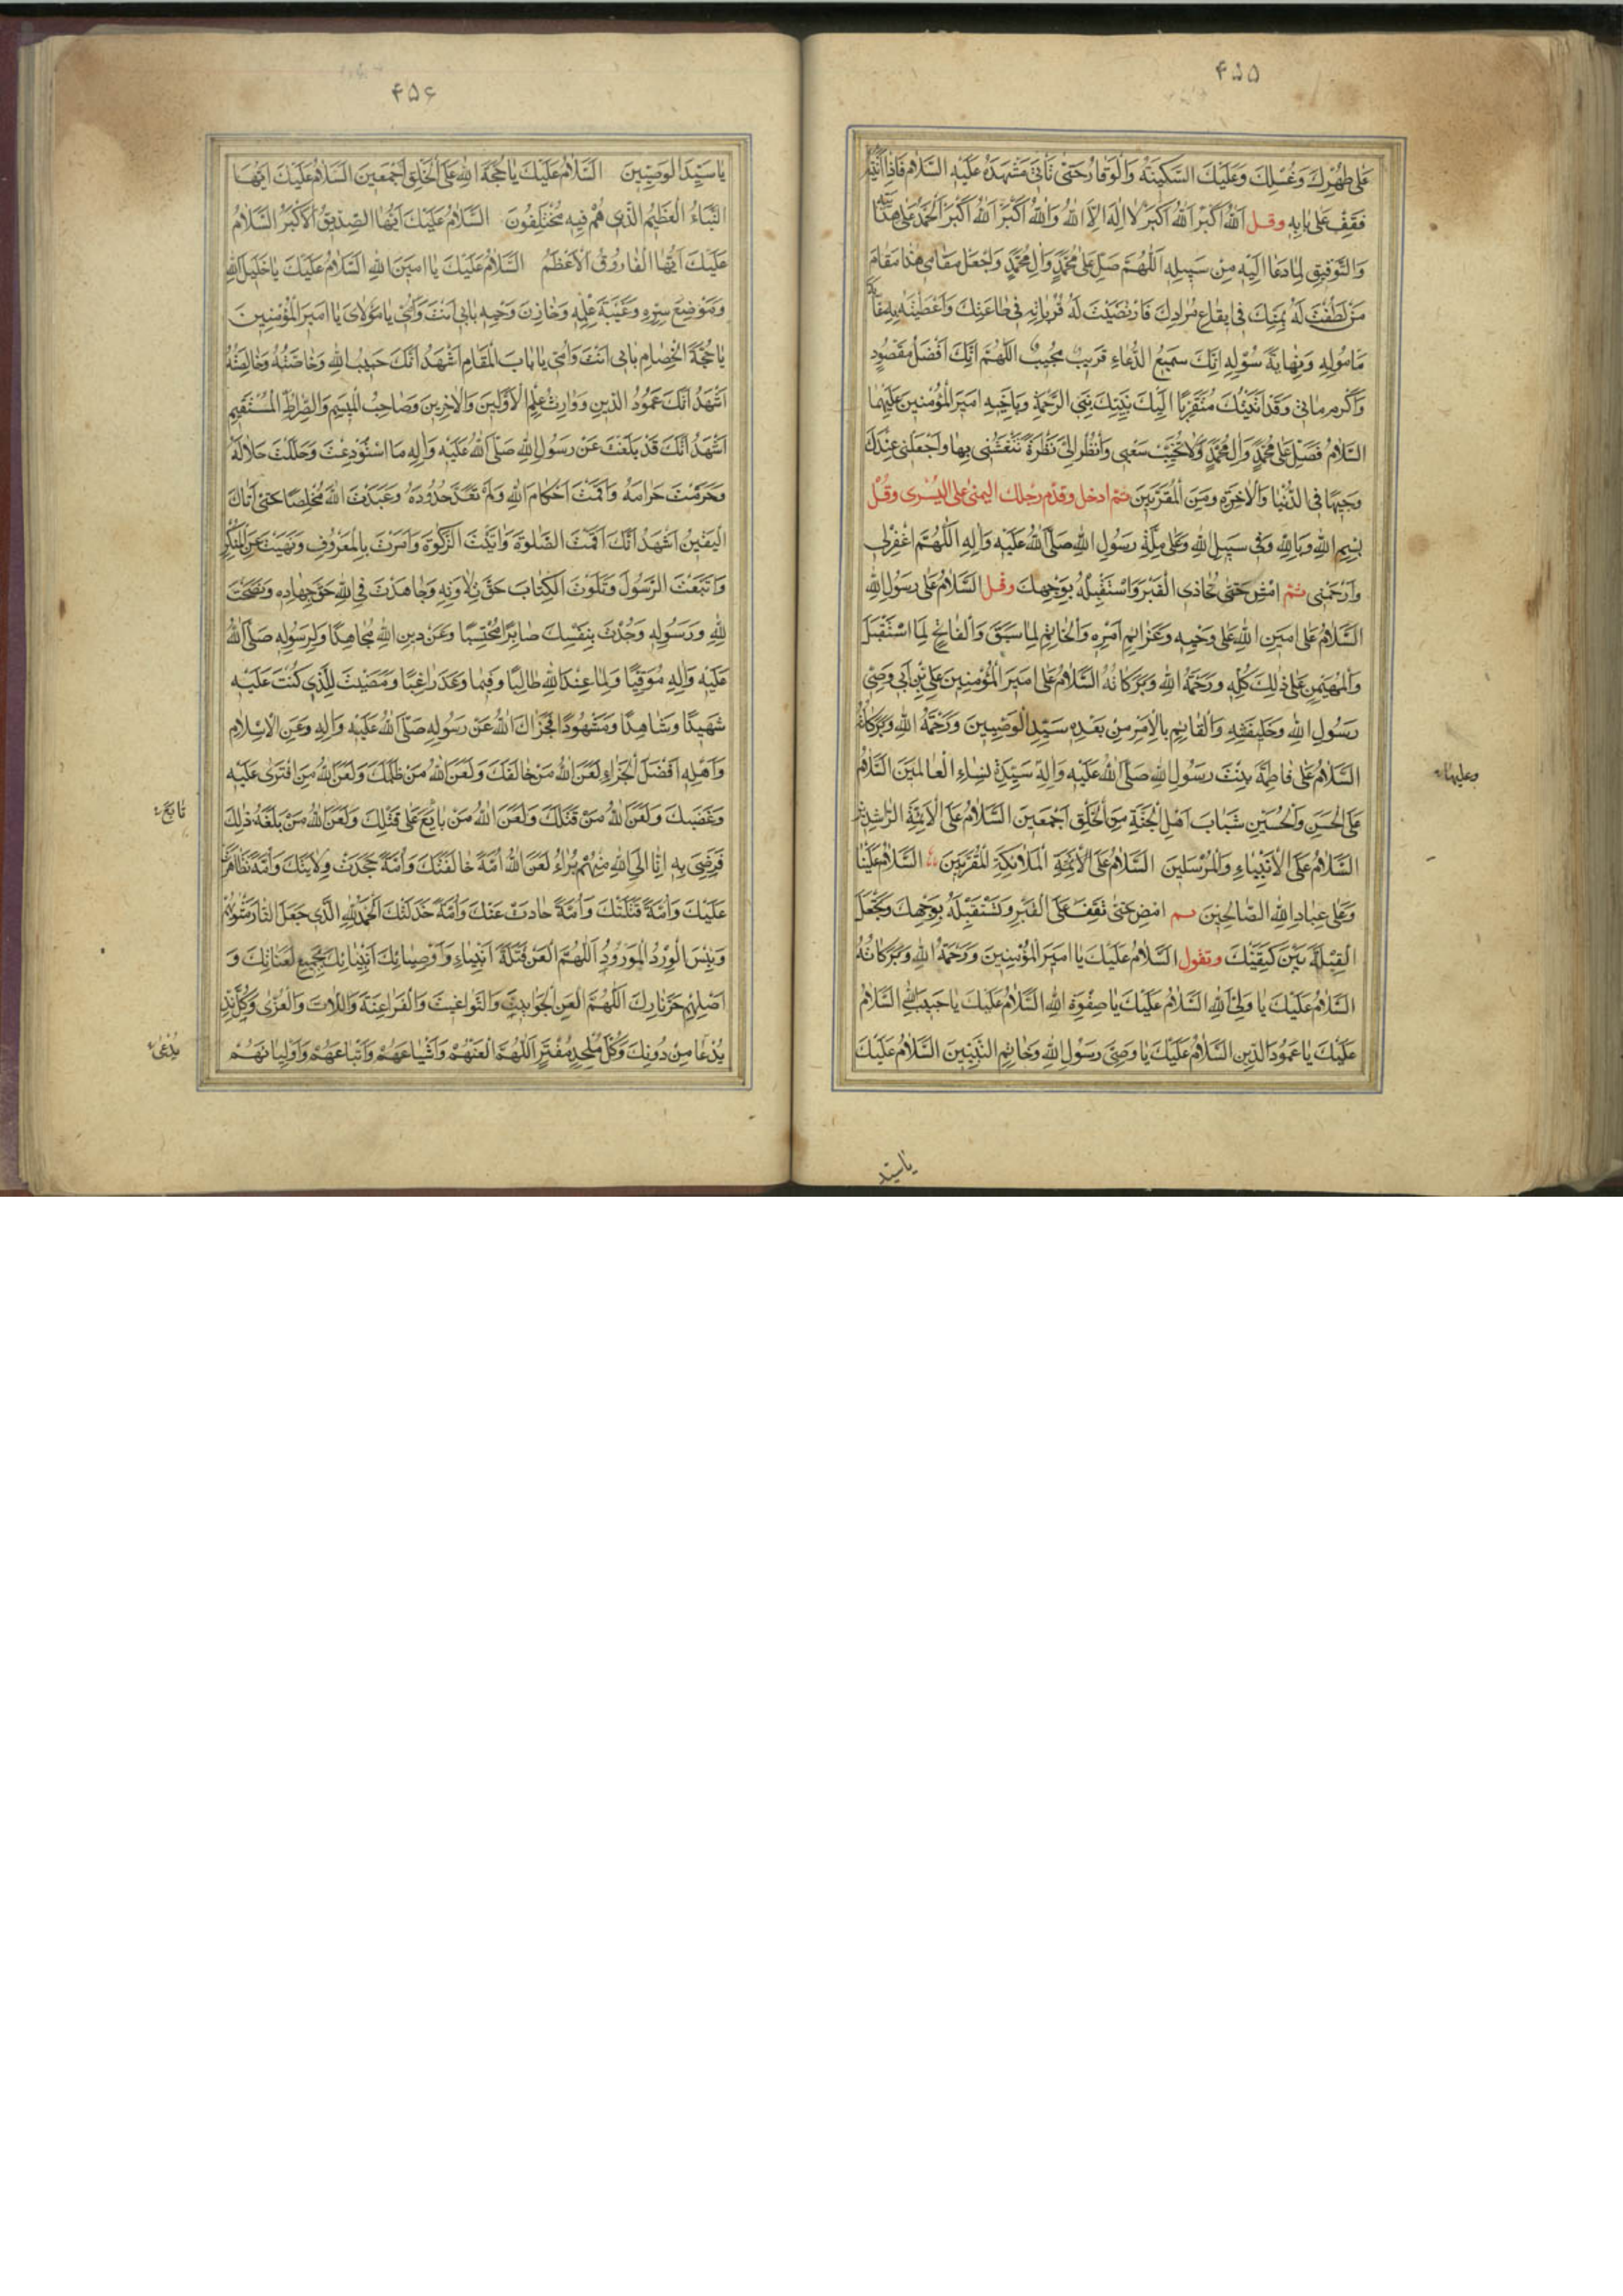 ۴۵۵
عَلى طُهْرِكَ وَغُسْلِكَ وَعَلَيْكَ السَّكينَةُ وَالْوَقارُ حَتّى تَأْتِيَ مَشْهَدَهُ عَلَيْهِ السَّلامُ فَاِذا اَتَيْتَهُ
فَقِفْ عَلى بابِهِ وقل اَللّٰهُ اَكْبَرُ اَللّٰهُ اَكْبَرُ لا اِلهَ اِلَّا اللّٰهُ وَاللّٰهُ اَكْبَرُ اَللّٰهُ اَكْبَرُ اَلْحَمْدُ لِلّٰهِ عَلى هِدايَتِهِ
وَالتَّوْفيقِ لِما دَعا اِلَيْهِ مِنْ سَبيلِهِ اَللّٰهُمَّ صَلِّ عَلى مُحَمَّدٍ وَالِ مُحَمَّدٍ وَاجْعَلْ مَقامي هٰذا مَقامَ
مَنْ لَطُفْتَ لَهُ بِمَنِّكَ في ايقاعِ مُرادِكَ فَارْتَضَيْتَ لَهُ قُرُباتِهِ في طاعَتِكَ وَاَعْطَيْتَهُ بِهِ غايَةَ
مَأمُولِهِ وَنِهايَةَ سُؤْلِهِ اِنَّكَ سَميعُ الدُّعاءِ قَريبٌ مُجيبٌ اَللّٰهُمَّ اِنَّكَ اَفْضَلُ مَقْصُودٍ
وَاَكْرَمُ مَأتِيٍّ وَقَدْ اَتَيْتُكَ مُتَقَرِّبًا اِلَيْكَ بِنَبِيِّكَ نَبِيِّ الرَّحْمَةِ وَبِاَخيهِ اَميرِ الْمُؤْمِنينَ عَلَيْهِمَا
السَّلامُ فَصَلِّ عَلى مُحَمَّدٍ وَالِ مُحَمَّدٍ وَلا تُخَيِّبْ سَعْيي وَانْظُرْ اِلَيَّ نَظْرَةً تَنْعَشُني بِها وَاجْعَلْني عِنْدَكَ
وَجيهًا فِي الدُّنْيا وَالْاٰخِرَةِ وَمِنَ الْمُقَرَّبينَ ثم ادخل وقدّم رجلك اليمنى على اليُسْرى وقُلْ
بِسْمِ اللّٰهِ وَبِاللّٰهِ وَفي سَبيلِ اللّٰهِ وَعَلى مِلَّةِ رَسُولِ اللّٰهِ صَلَّى اللّٰهُ عَلَيْهِ وَالِهِ اَللّٰهُمَّ اغْفِرْلي
وَارْحَمْني ثُمَّ امْضِ حَتّى تُحاذِيَ الْقَبْرَ وَاسْتَقْبِلْهُ بِوَجْهِكَ وقل اَلسَّلامُ عَلى رَسُولِ اللّٰهِ
اَلسَّلامُ عَلى اَمينِ اللّٰهِ عَلى وَحْيِهِ وَعَزائِمِ اَمْرِهِ وَالْخاتِمِ لِما سَبَقَ وَالْفاتِحِ لِمَا اسْتَقْبَلَ
وَالْمُهَيْمِنِ عَلى ذٰلِكَ كُلِّهِ وَرَحْمَةُ اللّٰهِ وَبَرَكاتُهُ اَلسَّلامُ عَلى اَميرِ الْمُؤْمِنينَ عَلِيِّ بْنِ اَبي وَصِيِّ
رَسُولِ اللّٰهِ وَخَليفَتِهِ وَالْقائِمِ بِالْاَمْرِ مِنْ بَعْدِهِ سَيِّدِ الْوَصِيّينَ وَرَحْمَةُ اللّٰهِ وَبَرَكاتُهُ
اَلسَّلامُ عَلى فاطِمَةَ بِنْتِ رَسُولِ اللّٰهِ صَلَّى اللّٰهُ عَلَيْهِ وَالِهِ سَيِّدَةِ نِساءِ الْعالَمينَ اَلسَّلامُ
وعليها
عَلَى الْحَسَنِ وَالْحُسَيْنِ شَبابِ اَهْلِ الْجَنَّةِ مِنَ الْخَلْقِ اَجْمَعينَ اَلسَّلامُ عَلَى الْاَئِمَّةِ الرّاشِدينَ
اَلسَّلامُ عَلَى الْاَنْبِياءِ وَالْمُرْسَلينَ اَلسَّلامُ عَلَى الْاَئِمَّةِ الْمَلائِكَةِ الْمُقَرَّبينَ اَلسَّلامُ عَلَيْنا
وَعَلى عِبادِ اللّٰهِ الصّالِحينَ ثم امْضِ حَتّى تَقِفَ عَلَى الْقَبْرِ وَتَسْتَقْبِلَهُ بِوَجْهِكَ وَتَجْعَلَ
الْقِبْلَةَ بَيْنَ كَتِفَيْكَ وتقول اَلسَّلامُ عَلَيْكَ يا اَميرَ الْمُؤْمِنينَ وَرَحْمَةُ اللّٰهِ وَبَرَكاتُهُ
اَلسَّلامُ عَلَيْكَ يا وَلِيَّ اللّٰهِ اَلسَّلامُ عَلَيْكَ يا صِفْوَةَ اللّٰهِ اَلسَّلامُ عَلَيْكَ يا حَبيبَ اللّٰهِ اَلسَّلامُ
عَلَيْكَ يا عَمُودَ الدّينِ اَلسَّلامُ عَلَيْكَ يا وَصِيَّ رَسُولِ اللّٰهِ وَخاتِمِ النَّبِيّينَ اَلسَّلامُ عَلَيْكَ
ياسيّد
۴۵۶
يا سَيِّدَ الْوَصِيّينَ اَلسَّلامُ عَلَيْكَ يا حُجَّةَ اللّٰهِ عَلَى الْخَلْقِ اَجْمَعينَ اَلسَّلامُ عَلَيْكَ اَيُّهَا
النَّبَاءُ الْعَظيمُ الَّذي هُمْ فيهِ مُخْتَلِفُونَ اَلسَّلامُ عَلَيْكَ اَيُّهَا الصِّدّيقُ الْاَكْبَرُ اَلسَّلامُ
عَلَيْكَ اَيُّهَا الْفارُوقُ الْاَعْظَمُ اَلسَّلامُ عَلَيْكَ يا اَمينَ اللّٰهِ اَلسَّلامُ عَلَيْكَ يا خَليلَ اللّٰهِ
وَمَوْضِعَ سِرِّهِ وَعَيْبَةَ عِلْمِهِ وَخازِنَ وَحْيِهِ بِاَبي اَنْتَ وَاُمّي يا مَوْلايَ يا اَميرَ الْمُؤْمِنينَ
يا حُجَّةَ الْخِصامِ بِاَبي اَنْتَ وَاُمّي يا بابَ الْمَقامِ اَشْهَدُ اَنَّكَ حَبيبُ اللّٰهِ وَخاصَّتُهُ وَخالِصَتُهُ
اَشْهَدُ اَنَّكَ عَمُودُ الدّينِ وَوارِثُ عِلْمِ الْاَوَّلينَ وَالْاٰخِرينَ وَصاحِبُ الْميسَمِ وَالصِّراطِ الْمُسْتَقيمِ
اَشْهَدُ اَنَّكَ قَدْ بَلَّغْتَ عَنْ رَسُولِ اللّٰهِ صَلَّى اللّٰهُ عَلَيْهِ وَالِهِ مَا اسْتُوْدِعْتَ وَحَلَّلْتَ حَلالَهُ
وَحَرَّمْتَ حَرامَهُ وَاَقَمْتَ اَحْكامَ اللّٰهِ وَلَمْ تَعَدَّ حُدُودَهُ وَعَبَدْتَ اللّٰهَ مُخْلِصًا حَتّى اَتاكَ
الْيَقينُ اَشْهَدُ اَنَّكَ اَقَمْتَ الصَّلوةَ وَاٰتَيْتَ الزَّكٰوةَ وَاَمَرْتَ بِالْمَعْرُوفِ وَنَهَيْتَ عَنِ الْمُنْكَرِ
وَاتَّبَعْتَ الرَّسُولَ وَتَلَوْتَ الْكِتابَ حَقَّ تِلاوَتِهِ وَجاهَدْتَ فِي اللّٰهِ حَقَّ جِهادِهِ وَنَصَحْتَ
لِلّٰهِ وَرَسُولِهِ وَجُدْتَ بِنَفْسِكَ صابِرًا مُحْتَسِبًا وَعَنْ دينِ اللّٰهِ مُجاهِدًا وَلِرَسُولِهِ صَلَّى اللّٰهُ
عَلَيْهِ وَالِهِ مُوقِيًا وَلِما عِنْدَ اللّٰهِ طالِبًا وَفيما وَعَدَ راغِبًا وَمَضَيْتَ لِلَّذي كُنْتَ عَلَيْهِ
شَهيدًا وَشاهِدًا وَمَشْهُودًا فَجَزاكَ اللّٰهُ عَنْ رَسُولِهِ صَلَّى اللّٰهُ عَلَيْهِ وَالِهِ وَعَنِ الْاِسْلامِ
وَاَهْلِهِ اَفْضَلَ الْجَزاءِ لَعَنَ اللّٰهُ مَنْ خالَفَكَ وَلَعَنَ اللّٰهُ مَنْ ظَلَمَكَ وَلَعَنَ اللّٰهُ مَنِ افْتَرى عَلَيْهِ
وَغَضَبَكَ وَلَعَنَ اللّٰهُ مَنْ قَتَلَكَ وَلَعَنَ اللّٰهُ مَنْ بايَعَ عَلى قَتْلِكَ وَلَعَنَ اللّٰهُ مَنْ بَلَغَهُ ذٰلِكَ
تابَعَ
فَرَضِيَ بِهِ اِنّا اِلَى اللّٰهِ مِنْهُمْ بُراءُ لَعَنَ اللّٰهُ اُمَّةً خالَفَتْكَ وَاُمَّةً جَحَدَتْ وِلايَتَكَ وَاُمَّةً تَظاهَرَتْ
عَلَيْكَ وَاُمَّةً قَتَلَتْكَ وَاُمَّةً حادَتْ عَنْكَ وَاُمَّةً خَذَلَتْكَ اَلْحَمْدُ لِلّٰهِ الَّذي جَعَلَ النّارَ مَثْويهُمْ
وَبِئْسَ الْوِرْدُ الْمَوْرُودُ اَللّٰهُمَّ الْعَنْ قَتَلَةَ اَنْبِياءِ وَاَوْصِيائِكَ اَنْبِيائِكَ بِجَميعِ لَعَناتِكَ وَ
اَصْلِهِمْ حَرَّ نارِكَ اَللّٰهُمَّ الْعَنِ الْجَوابيتَ وَالطَّواغيتَ وَالْفَراعِنَةَ وَاللّاتَ وَالْعُزّى وَكُلَّ نِدٍّ
يُدْعا مِنْ دُونِكَ وَكُلَّ مُلْحِدٍ مُفْتَرٍ اَللّٰهُمَّ الْعَنْهُمْ وَاَشْياعَهُمْ وَاَتْباعَهُمْ وَاَوْلِيائَهُمْ
يُدْعى